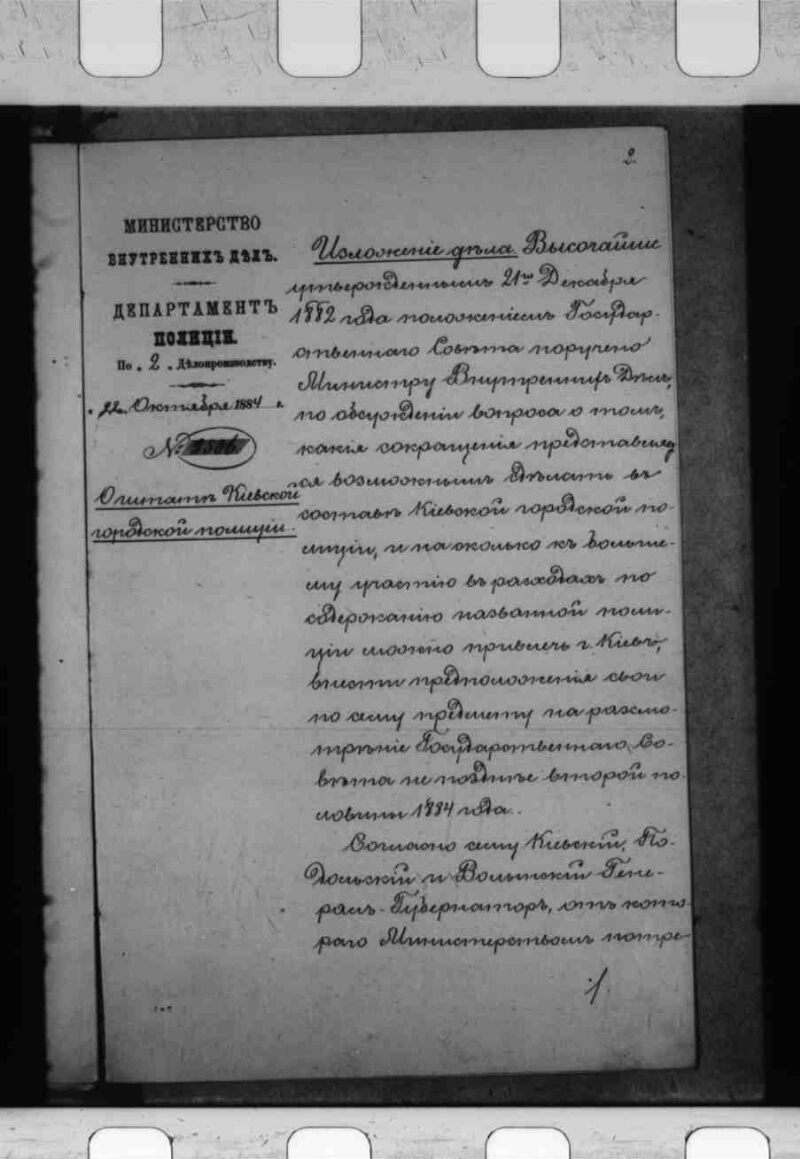 2.
МИНИСТЕРСТВО
ВНУТРЕННИХЪ ДѢЛЪ.
ДЕПАРТАМЕНТЪ
ПОЛИЦІИ.
По . 2 . Дѣлопроизводству.
22 Октября 1884 г.
№
О штатѣ Кіевской
городской полиціи.
Изложеніе дѣла. Высочайше
утвержденнымъ 21го Декабря
1882 года положеніемъ Государ-
ственнаго Совѣта поручено
Министру Внутреннихъ Дѣлъ,
по обсужденіи вопроса о томъ,
какія сокращенія представляет
ся возможнымъ сдѣлать въ
составѣ Кіевской городской по-
лиціи, и на сколько къ больше-
му участію въ расходахъ по
содержанію названной поли-
ціи можно привлечь г. Кіевъ,
внести предположенія свои
по сему предмету на разсмо-
трѣніе Государственнаго Со-
вѣта не позднѣе второй по-
ловины 1884 года.
Согласно сему Кіевскій, По-
дольскій и Волынскій Гене-
ралъ-Губернаторъ, отъ кото-
раго Министерствомъ потре-